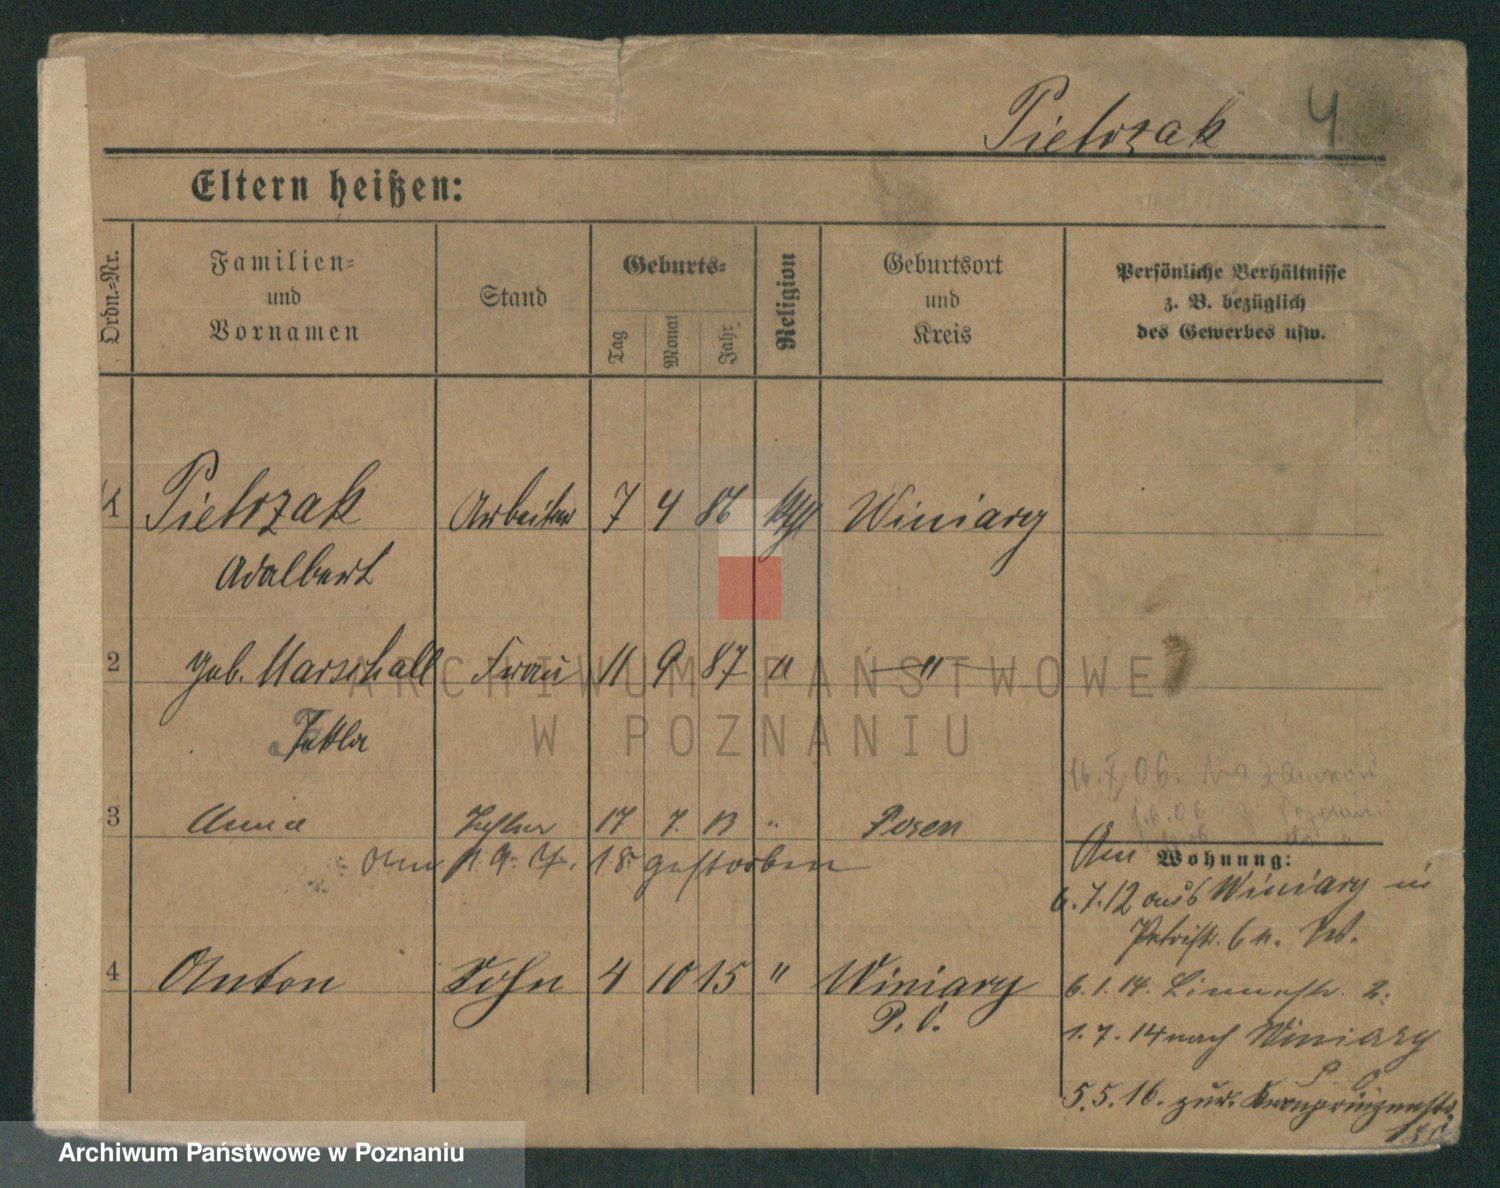 Pietrzak 4
Eltern heißen:
Ordn.=Nr.
Familien=
und
Vornamen
Stand
Geburts=
Tag
Monat
Jahr
Religion
Geburtsort
und
Kreis
Persönliche Verhältnisse
z. B. bezüglich
des Gewerbes usw.
1 Pietrzak Arbeiter 7 4 86 kath Winiary
Adalbert
2 geb. Marschall Frau 11 9 87 " —"—
Tekla
3 Anna Tochter 17 7. 13 " Posen
18 gestorben
4 Anton Sohn 4 10 15 " Winiary
P. O.
16. X. 06.
1.6.06
Am Wohnung:
6.7.12 aus Winiary in
Petristr. 6
6.1.14. 2.
1.7.14 nach Winiary
P. O.
5.5.16. zur. Kronprinzenstr.
ARCHIWUM PAŃSTWOWE
W POZNANIU
Archiwum Państwowe w Poznaniu